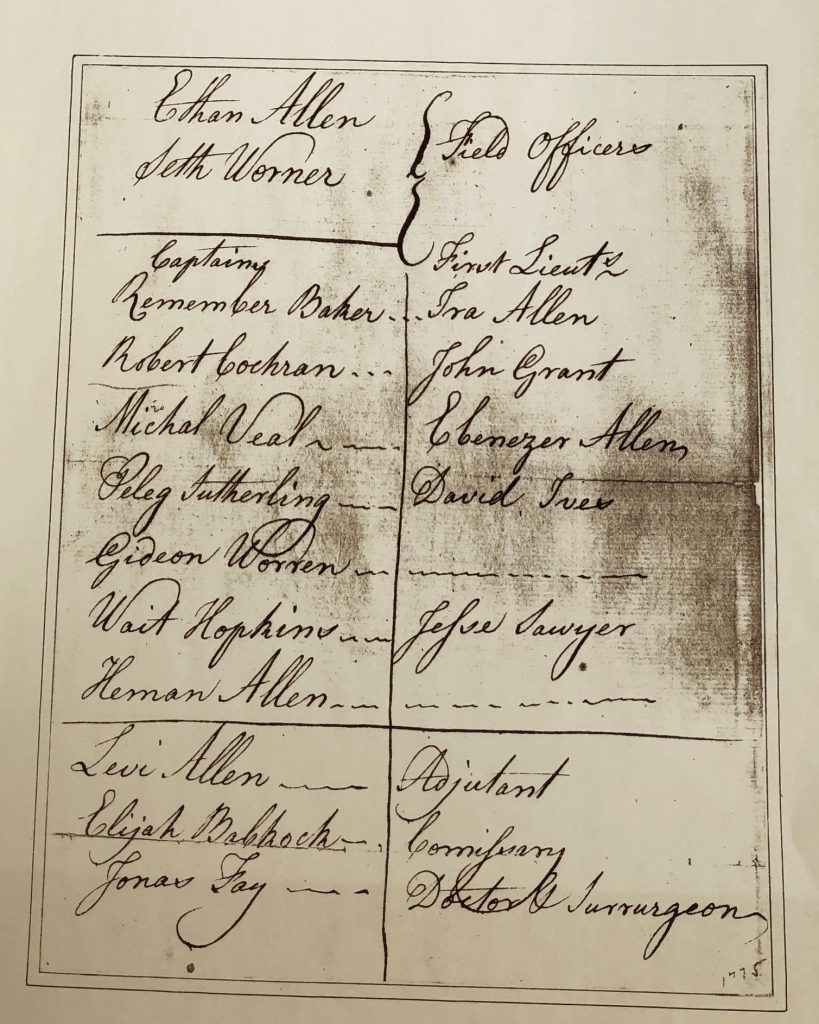 Ethan Allen
Seth Worner
Field Officers
Captains First Lieuts
Remember Baker ... Ira Allen
Robert Cochran ... John Grant
Michal Veal Ebenezer Allen
Peleg Sutherling David Ives
Gideon Worren
Wait Hopkins Jesse Sawyer
Heman Allen
Levi Allen Adjutant
Elijah Babkock Comissary
Jonas Fay Doctor & Surrurgeon
1775